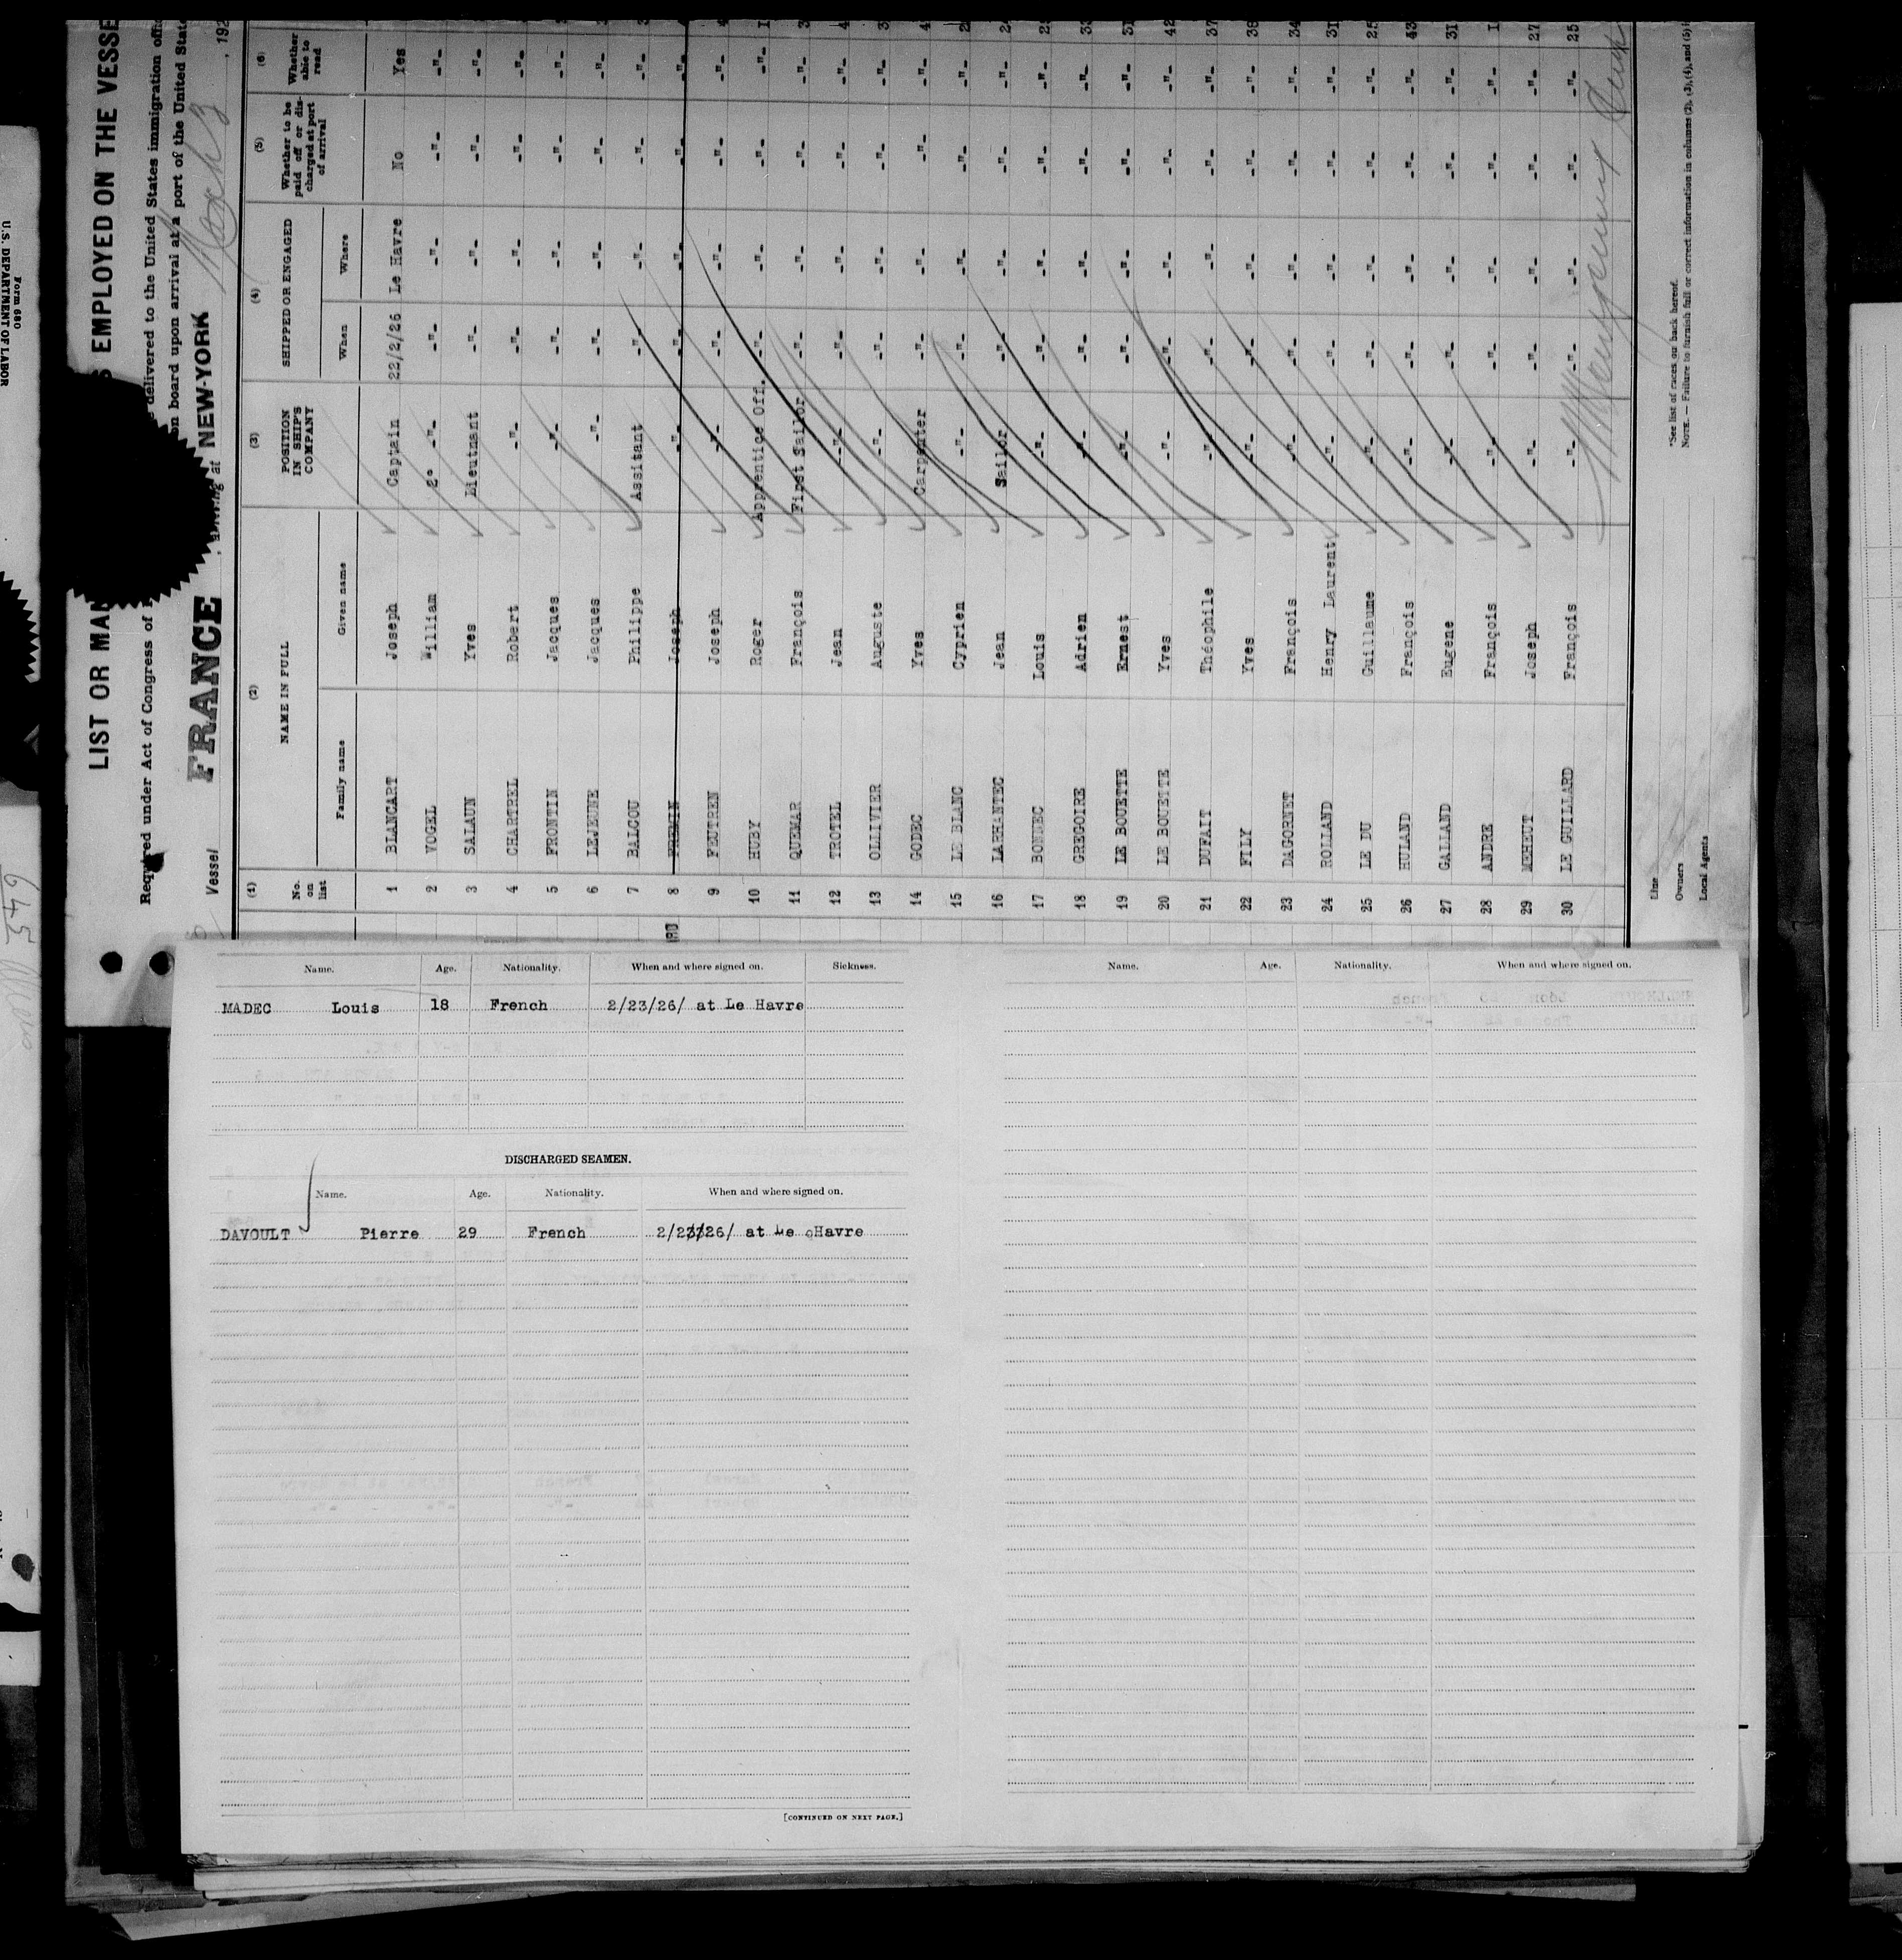 Form 680
U.S. DEPARTMENT OF LABOR
LIST OR MAN S EMPLOYED ON THE VESSE
Required under Act of Congress of delivered to the United States immigration offi
on board upon arrival at a port of the United Stat
Vessel FRANCE , arriving at NEW-YORK March 3 , 192
(1) (2) (3) (4) (5) (6)
No. on list NAME IN FULL POSITION IN SHIP'S COMPANY SHIPPED OR ENGAGED Whether to be paid off or discharged at port of arrival Whether able to read
Family name Given name When Where
1 BLANCART Joseph Captain 22/2/26 Le Havre No Yes
2 VOGEL William 2° -"- -"- -"- -"- -"-
3 SALAUN Yves Lieutnant -"- -"- -"- -"-
4 CHARTREL Robert -"- -"- -"- -"- -"-
5 FRONTIN Jacques -"- -"- -"- -"- -"-
6 LEJEUNE Jacques -"- -"- -"- -"- -"-
7 BALCOU Philippe Assitant -"- -"- -"- -"-
8 Joseph -"- -"- -"- -"- -"-
9 FEUTREN Joseph -"- -"- -"- -"- -"-
10 HUBY Roger Apprentice Off. -"- -"- -"- -"-
11 QUEMAR François First Sailor -"- -"- -"- -"-
12 TROTEL Jean -"- -"- -"- -"- -"-
13 OLLIVIER Auguste -"- -"- -"- -"- -"-
14 GODEC Yves Carpenter -"- -"- -"- -"-
15 LE BLANC Cyprien -"- -"- -"- -"- -"-
16 LARHANTEC Jean Sailor -"- -"- -"- -"-
17 BONDEC Louis -"- -"- -"- -"- -"-
18 GREGOIRE Adrien -"- -"- -"- -"- -"-
19 LE BOUETTE Ernest -"- -"- -"- -"- -"- 31
20 LE BOUETTE Yves -"- -"- -"- -"- -"- 42
21 DUFAIT Théophile -"- -"- -"- -"- -"- 37
22 FILY Yves -"- -"- -"- -"- -"- 38
23 DAGORNET François -"- -"- -"- -"- -"- 34
24 ROLLAND Henry Laurent -"- -"- -"- -"- -"- 31
25 LE DU Guillaume -"- -"- -"- -"- -"- 25
26 HULAND François -"- -"- -"- -"- -"- 43
27 GALLAND Eugene -"- -"- -"- -"- -"- 31
28 ANDRE François -"- -"- -"- -"- -"-
29 MEHEUT Joseph -"- -"- -"- -"- -"- 27
30 LE GUILLARD François -"- -"- -"- -"- -"- 25
Line
Owners
Local Agents
*See list of races on back hereof.
NOTE.— Failure to furnish full or correct information in columns (2), (3), (4), and (5) i
Name. Age. Nationality. When and where signed on. Sickness.
MADEC Louis 18 French 2/23/26/ at Le Havre
DISCHARGED SEAMEN.
Name. Age. Nationality. When and where signed on.
DAVOULT Pierre 29 French 2/23/26/ at Le Havre
[CONTINUED ON NEXT PAGE.]
Name. Age. Nationality. When and where signed on.